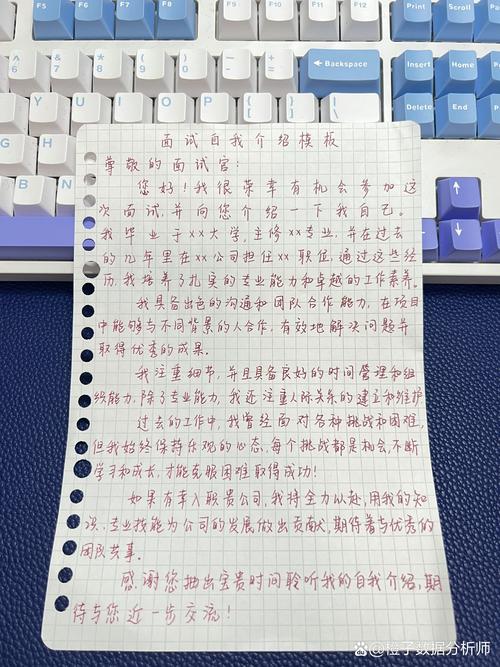 F5
F6
F7
F8
F9
F10
F11
F12
Print
Scroll
^
6
&
7
*
8
(
9
)
0
-
+
=
Backspace
Insert
Home
Y
U
I
O
P
{
[
}
]
|
\
Delete
End
G
H
↑
←
↓
面试自我介绍模板
尊敬的面试官:
您好!我很荣幸有机会参加这
次面试,并向您介绍一下我自己。
我毕业于xx大学,主修xx专业,并在过去
的几年里在xx公司担任xx职位,通过这些经
历,我培养了扎实的专业能力和卓越的工作素养。
我具备出色的沟通和团队合作能力,在项目
中能够与不同背景的人合作,有效地解决问题并
取得优秀的成果。
我注重细节,并且具备良好的时间管理和组
织能力,除了专业能力,我还注重人际关系的建立和维护
过去的工作中,我曾经面对各种挑战和困难,
但我始终保持乐观的心态,每个挑战都是机会,不断
学习和成长,才能克服困难取得成功!
如果有幸入职贵公司,我将全力以赴,用我的知
识、专业技能为公司的发展做出贡献,期待着与优秀的
团队共事.
感谢您抽出宝贵时间聆听我的自我介绍,期
待与您近一步交流!
@橙子数据分析师